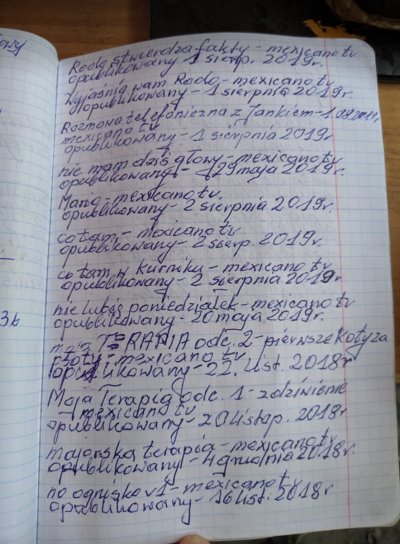 Rado stwierdza fakty - mexicano tv
opublikowany 1 sierp. 2019r.
Wyjaśnia wam Rado - mexicano tv
opublikowany - 1 sierpnia 2019r
Rozmowa telefoniczna z Jankiem - 1.08.2019r,
mexicano tv
opublikowany - 1 sierpnia 2019r
nie mam dziś głowy - mexicano tv
opublikowany - 29 maja 2019r.
Mano - mexicano tv
opublikowany - 2 sierpnia 2019r.
co tam - mexicano tv
opublikowany - 2 sierp. 2019r.
co tam w Kurniku - mexicano tv
opublikowany - 2 sierpnia 2019r
nie lubię poniedziałek - mexicano tv
opublikowany - 20 maja 2019r.
moja TERAPIA odc. 2 - pierwsze
- mexicano tv
opublikowany - 22. list. 2018r
Moja Terapia odc. 1 - zdziwienie
- mexicano tv
opublikowany - 20 listop. 2018r
majorska terapia - mexicano tv
opublikowany - 4 grudnia 2018r.
no ognisko v1 - mexicano tv
opublikowany - 16 list. 2018r
36